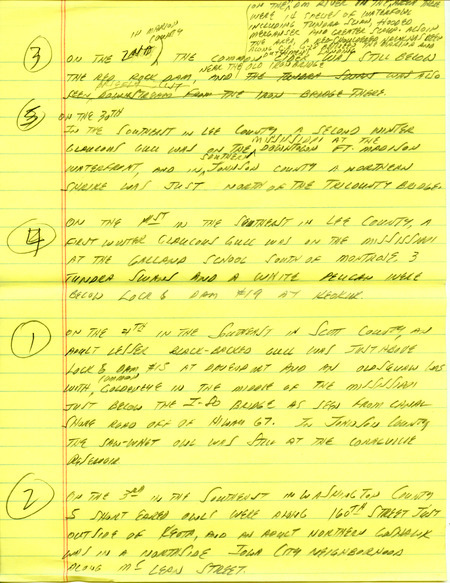 (ON THE DM RIVER IN THIS AREA THERE
IN MARION COUNTY
WERE 14 SPECIES OF WATERFOWL
INCLUDING TUNDRA SWAN, HOODED
MERGANSER AND GREATER SCAUP. ALSO IN
THE AREA
③ ON THE THE COMMON WAS STILL BELOW
NEAR THE OLD IRON BRIDGE
THE RED ROCK DAM, AND THE TUNDRA SWANS WAS ALSO
SEEN DOWNSTREAM FROM THE IRON BRIDGE THERE.
⑤ ON THE 30TH
IN THE SOUTHEAST IN LEE COUNTY, A SECOND WINTER
MISSISSIPPI AT THE
GLAUCOUS GULL WAS ON THE DOWNTOWN FT. MADISON
SOUTHERN
WATERFRONT, AND IN JOHNSON COUNTY A NORTHERN
SHRIKE WAS JUST NORTH OF THE TRICOUNTY BRIDGE.
④ ON THE IN THE SOUTHEAST IN LEE COUNTY, A
FIRST WINTER GLAUCOUS GULL WAS ON THE MISSISSIPPI
AT THE GALLAND SCHOOL SOUTH OF MONTROSE. 3
TUNDRA SWANS AND A WHITE PELICAN WERE
BELOW LOCK & DAM #19 AT KEOKUK.
① ON THE IN THE SOUTHEAST IN SCOTT COUNTY, AN
ADULT LESSER BLACK-BACKED GULL WAS JUST ABOVE
LOCK & DAM #15 AT DAVENPORT AND AN OLDSQUAW WAS
COMMON
WITH, GOLDENEYE IN THE MIDDLE OF THE MISSISSIPPI
JUST BELOW THE I-80 BRIDGE AS SEEN FROM CANAL
SHORE ROAD OFF OF HIWAY 67. IN JOHNSON COUNTY
THE SAW-WHET OWL WAS STILL AT THE CORALVILLE
RESERVOIR
② ON THE 3RD IN THE SOUTHEAST IN WASHINGTON COUNTY
5 SHORT EARED OWLS WERE ALONG 160TH STREET JUST
OUTSIDE OF KEOTA, AND AN ADULT NORTHERN GOSHAWK
WAS IN A NORTHSIDE IOWA CITY NEIGHBORHOOD
ALONG MC LEAN STREET.